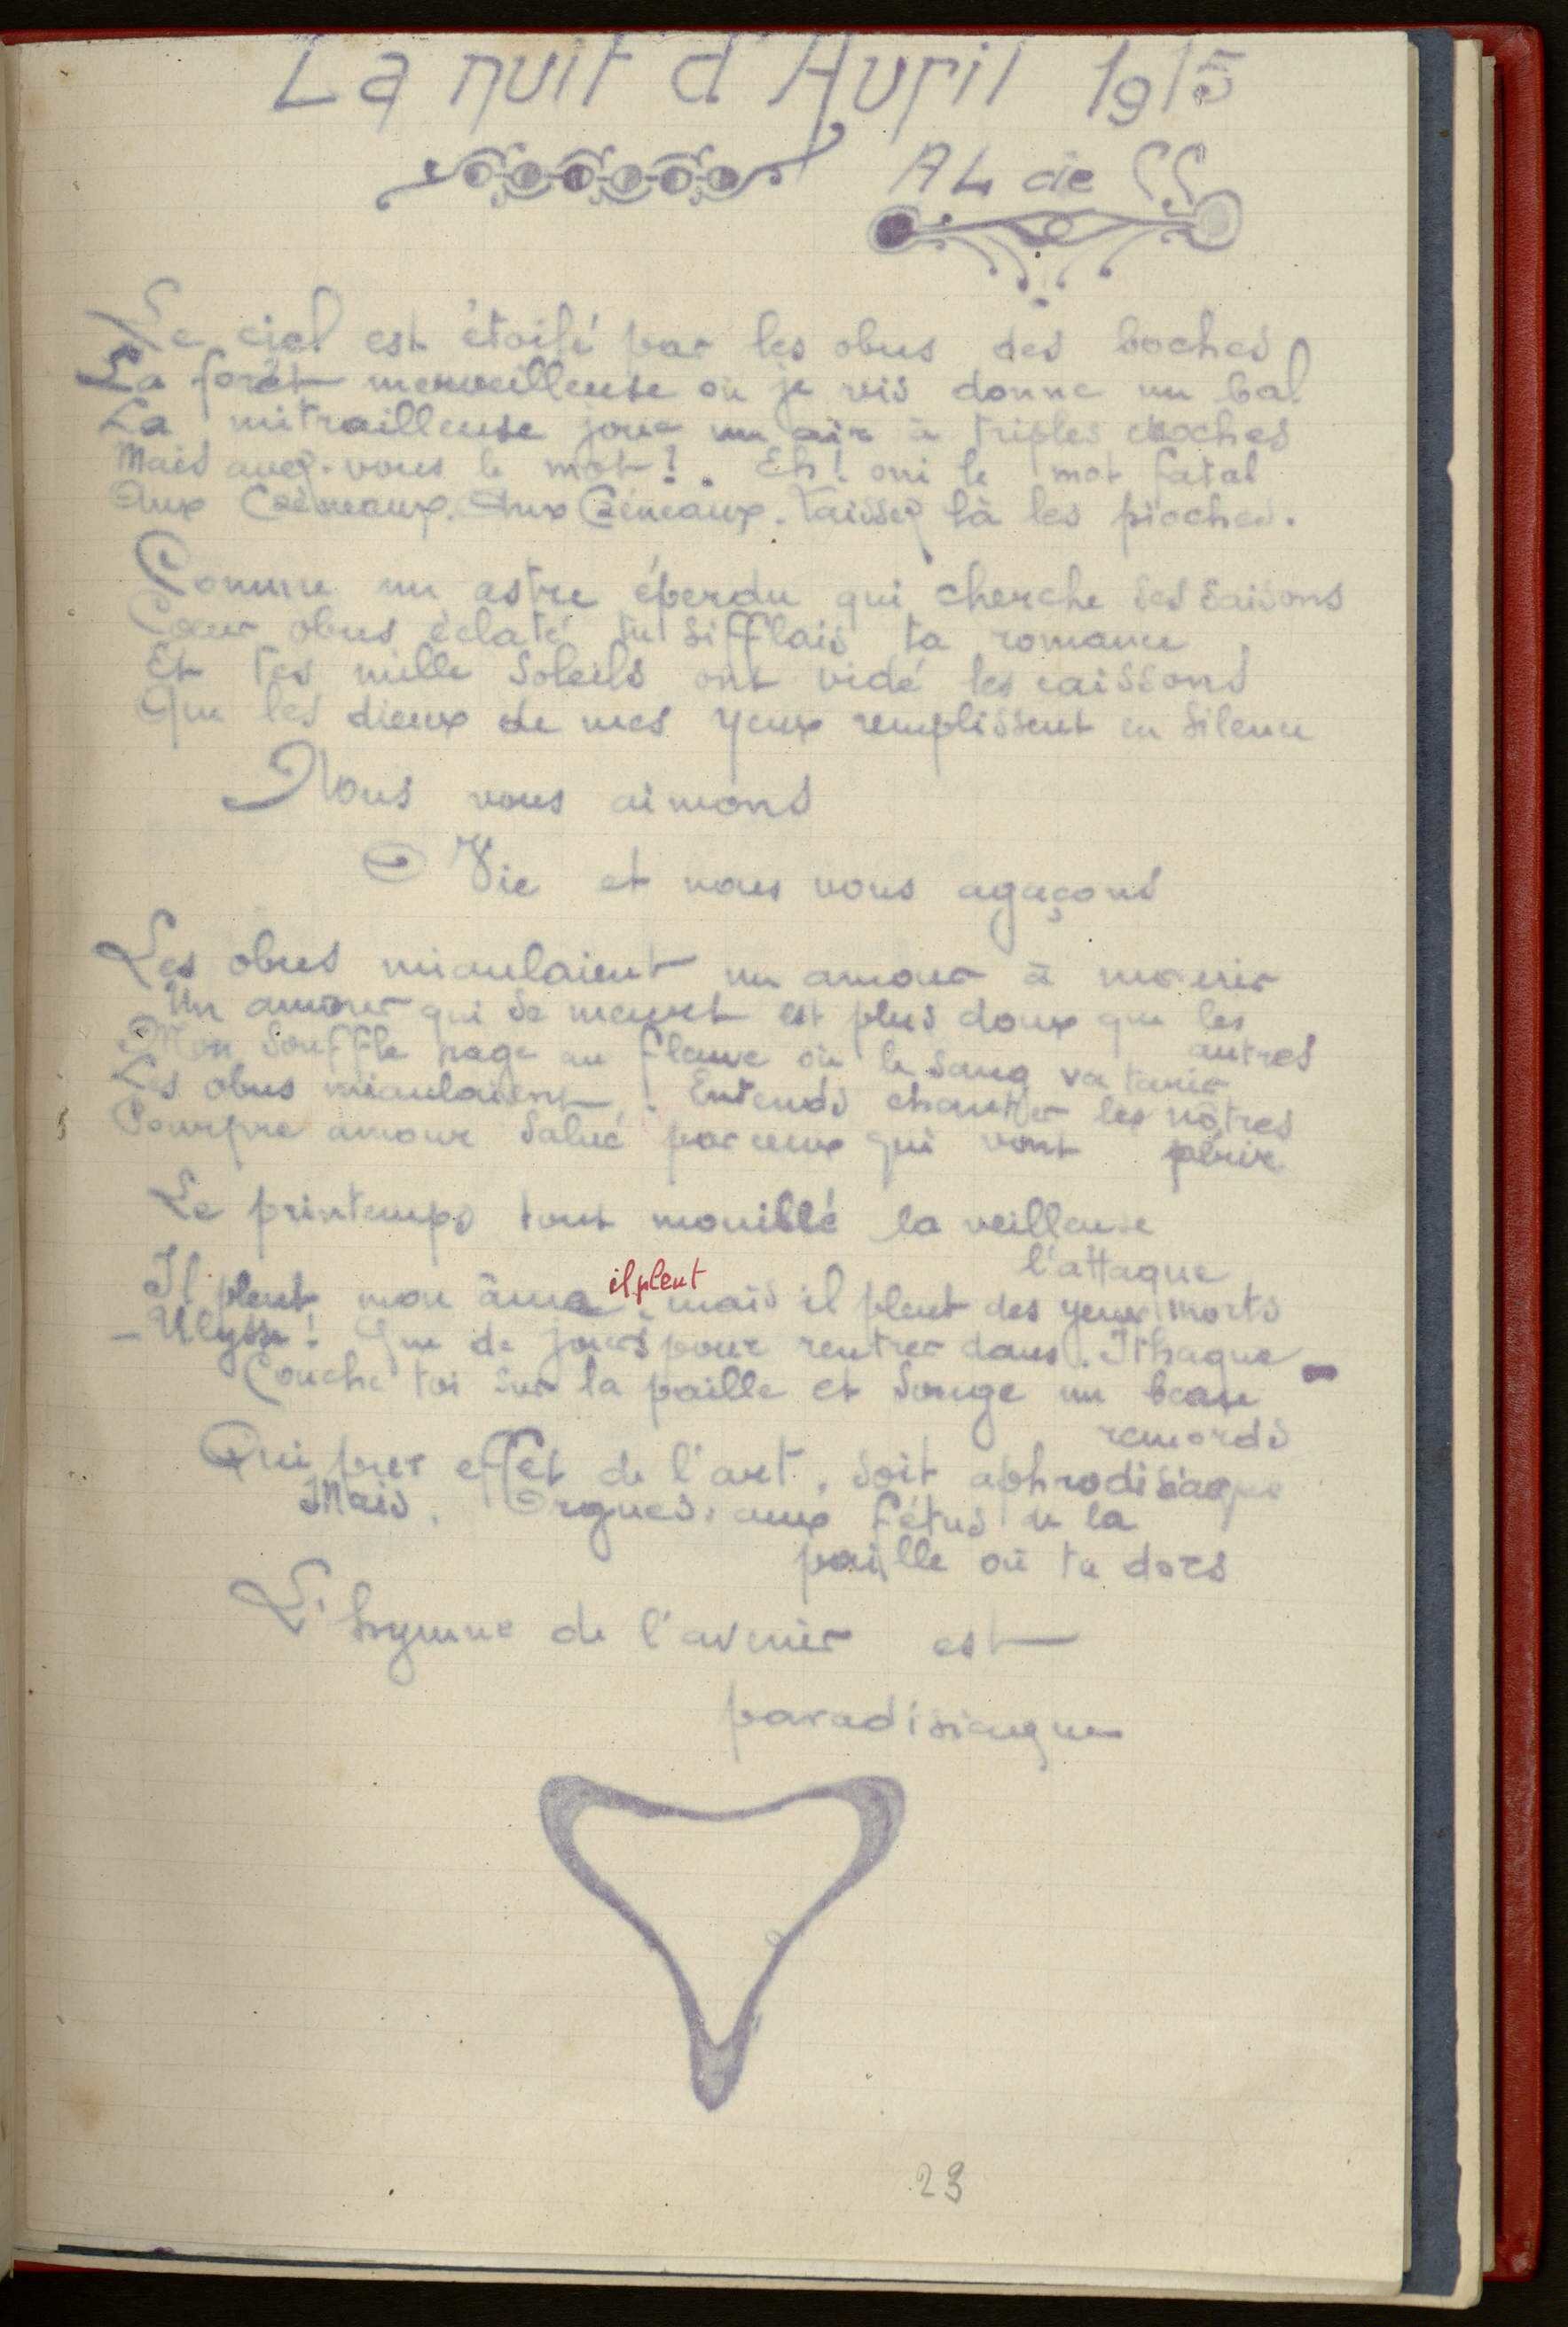 La nuit d'Avril 1915
AL de CC
Le ciel est étoilé par les obus des boches
La forêt merveilleuse où je vis donne un bal
La mitrailleuse joue un air à triples croches
Mais avez-vous le mot ? Eh ! oui le mot fatal
Aux Créneaux. Aux Créneaux. Laissez là les pioches.
Comme un astre éperdu qui cherche ses saisons
Cœur obus éclaté tu sifflais ta romance
Et tes mille soleils ont vidé les caissons
Que les dieux de mes yeux remplissent en silence
Nous vous aimons
O Vie et nous vous agaçons
Les obus miaulaient un amour à mourir
Un amour qui se meurt est plus doux que les
autres
Mon souffle nage au fleuve où le sang va tarir
Les obus miaulaient ! Entends chanter les nôtres
Pourpre amour salué par ceux qui vont périr
Le printemps tout mouillé la veilleuse
l'attaque
Il pleut mon âme il pleut mais il pleut des yeux morts
- Ulysse ! Que de jours pour rentrer dans Ithaque -
Couche toi sur la paille et songe un beau
remords
Qui pur effet de l'art, soit aphrodisiaque
Mais, Orgues, aux fétus de la
paille où tu dors
L'hymne de l'avenir est
paradisiaque
23